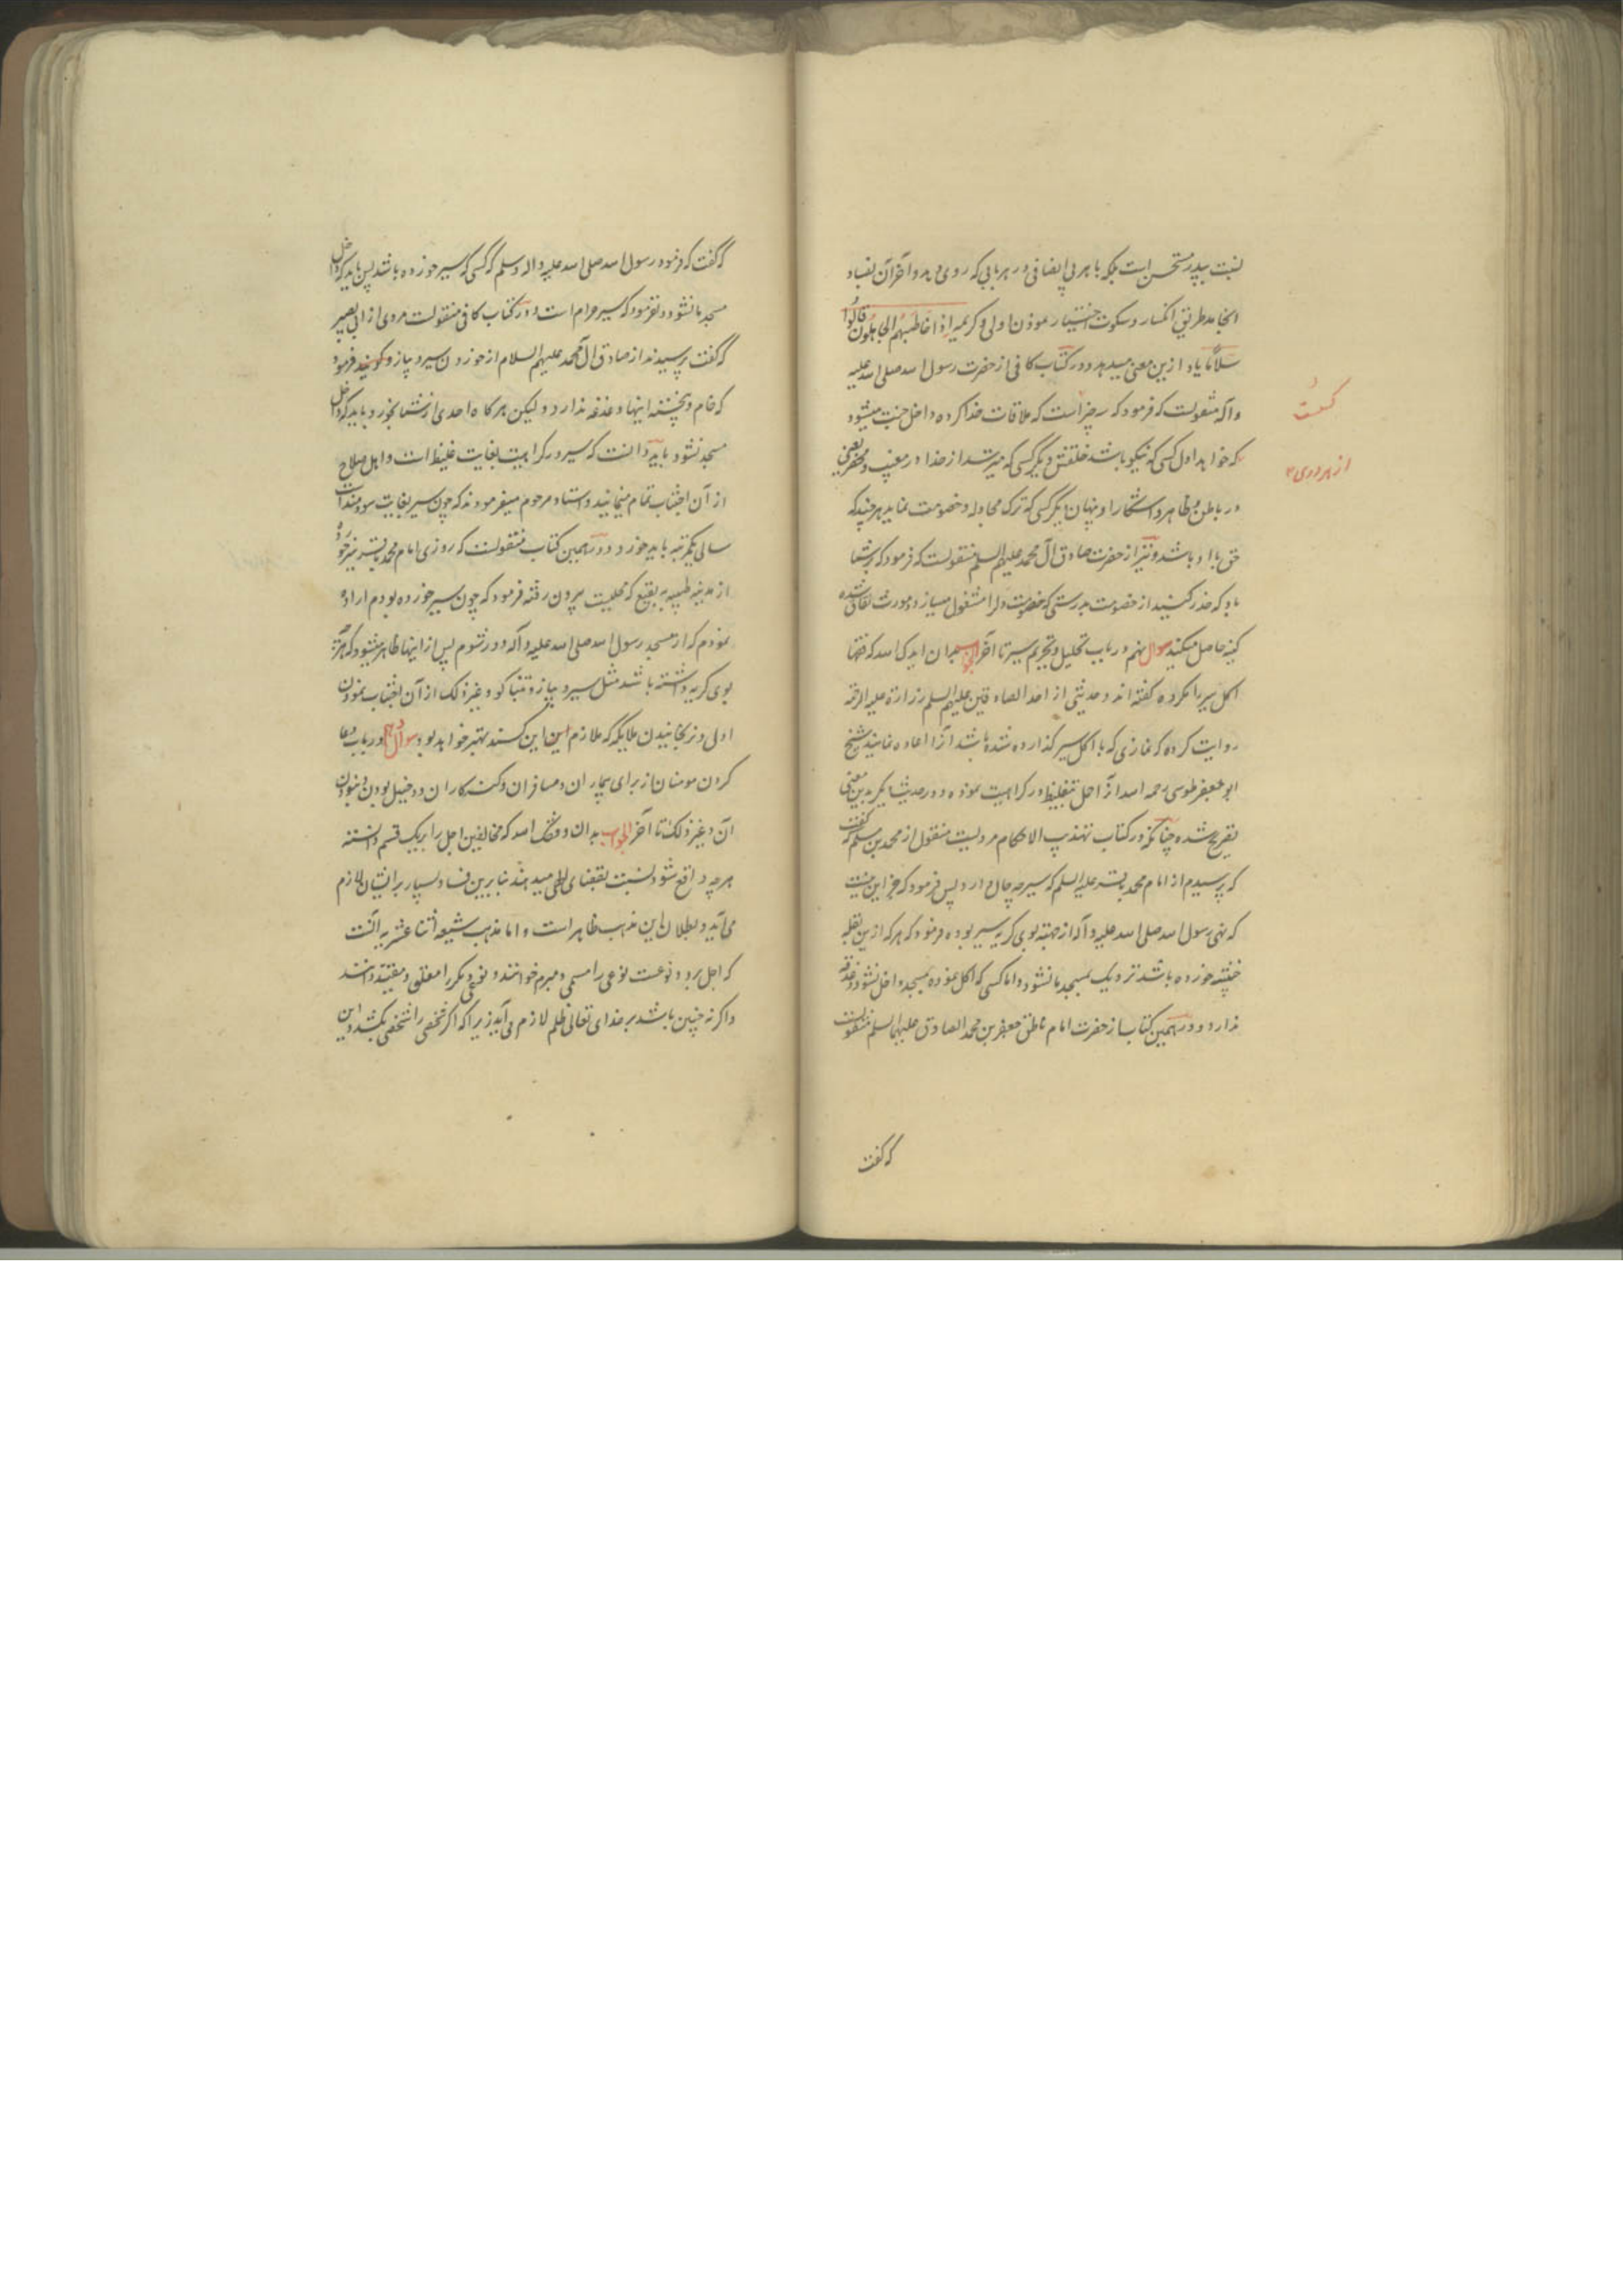 نسبت بپدر مستحسن است بلکه با هر بی انصافی در هر بابی که روی دهد و آخر آن بفساد
انجامد طریق انکسار و سکوت اختیار نمودن اولی و کریمه اِذا خاطَبَهُم الجاهِلُونَ قالُوا
سَلاماً یاد ازین معنی میدهد و در کتاب کافی از حضرت رسول الله صلی الله علیه
وآله منقولست که فرمود که سه چیز است که ملاقات خدا کرده داخل جنت میشود
از هر دری
که خواهد اول کسی که نیکو باشد خلقش دیگر کسی که بترسد از خدا در مغیب و محضر یعنی
در باطن و ظاهر و آشکارا و پنهان دیگر کسی که ترک مجادله و خصومت نماید هر چند که
حق با او باشد و نیز از حضرت صادق آل محمد علیهم السلم منقولست که فرمود که بر شما
باد که حذر کنید از خصومت بدرستی که خصومت دلرا مشغول میسازد و مورث نفاق شده
کینه حاصل میکند سوال نهم در باب تحلیل و تحریم سیر تا آخر الجواب بدان ایدک الله که فقها
اکل سیر را مکروه گفته اند و حدیثی از احد الصادقین علیهم السلم زراره علیه الرحمه
روایت کرده که نمازی که با اکل سیر گذارده شده باشد آنرا اعاده نمایند شیخ
ابو جعفر طوسی رحمه الله آنرا حمل بتغلیظ در کراهیت نموده و در حدیث دیگر بدین معنی
تصریح شده چنانکه در کتاب تهذیب الاحکام مرویست منقول از محمد بن مسلم که گفت
که پرسیدم از امام محمد باقر علیه السلم که سیر چه حال دارد پس فرمود که جز این نیست
که نهی رسول الله صلی الله علیه وآله از جهته بوی کریه سیر بوده فرمود که هر که ازین بقله
خبیثه خورده باشد نزدیک بمسجد ما نشود و اما کسی که اکل نموده بمسجد داخل نشود دغدغه
ندارد و در همین کتاب از حضرت امام ناطق جعفر بن محمد الصادق علیهما السلم منقولست
که گفت
که گفت که فرمود رسول الله صلی الله علیه واله وسلم که کسی که سیر خورده باشد پس باید که داخل
مسجد ما نشود و نفرمود که سیر حرام است و در کتاب کافی منقولست مروی از ابی بصیر
که گفت پرسیدند از صادق آل محمد علیهم السلام از خوردن سیر و پیاز و فرمود
که خام و پخته اینها دغدغه ندارد و لیکن هر گاه احدی از شما بخورد باید که داخل
مسجد نشود باید دانست که سیر در کراهیت بغایت غلیظ است و اهل صلاح
از آن اجتناب تمام مینمایند و استاد مرحوم میفرمودند که چون سیر بغایت سودمند است
سالی یکمرتبه باید خورد و در همین کتاب منقولست که روزی امام محمد باقر سیر خورده
از مدینه طیبه به بقیع که محلیست بیرون رفته فرمود که چون سیر خورده بودم اراده
نمودم که از مسجد رسول الله صلی الله علیه وآله دور شوم پس از اینها ظاهر میشود که هر چه
بوی کریه داشته باشد مثل سیر و پیاز و تنباکو و غیر ذلک از آن اجتناب نمودن
اولی و نرنجانیدن ملایکه که ملازم این کسند بهتر خواهد بود سوال دهم در باب دعا
کردن مومنان از برای بیماران و مسافران و گنه کاران و دخیل بودن و نبودن
آن و غیر ذلک تا آخر الجواب بدان وفقک الله که مخالفین اجل را بر یک قسم دانسته
هر چه واقع شود نسبت بقضای الهی میدهند بنا برین فساد بسیار بر ایشان لازم
می آید و بطلان این مذهب ظاهر است و اما مذهب شیعه اثنا عشریه آنست
که اجل بر دو نوعست نوعی را مسمی و مبرم خوانند و نوعی دیگر را معلق و مقید دانند
و اگر نه چنین باشد بر خدای تعالی ظلم لازم می آید زیرا که اگر شخصی را شخصی بکشد و این